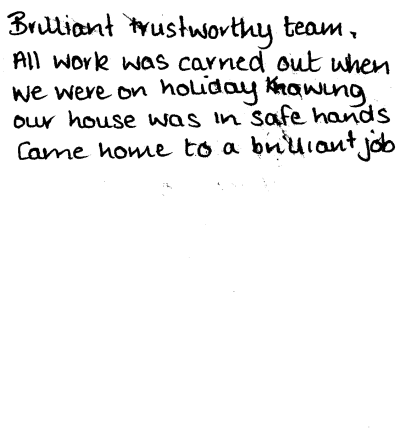 Brilliant trustworthy team.
All work was carried out when
we were on holiday knowing
our house was in safe hands
Came home to a brilliant job